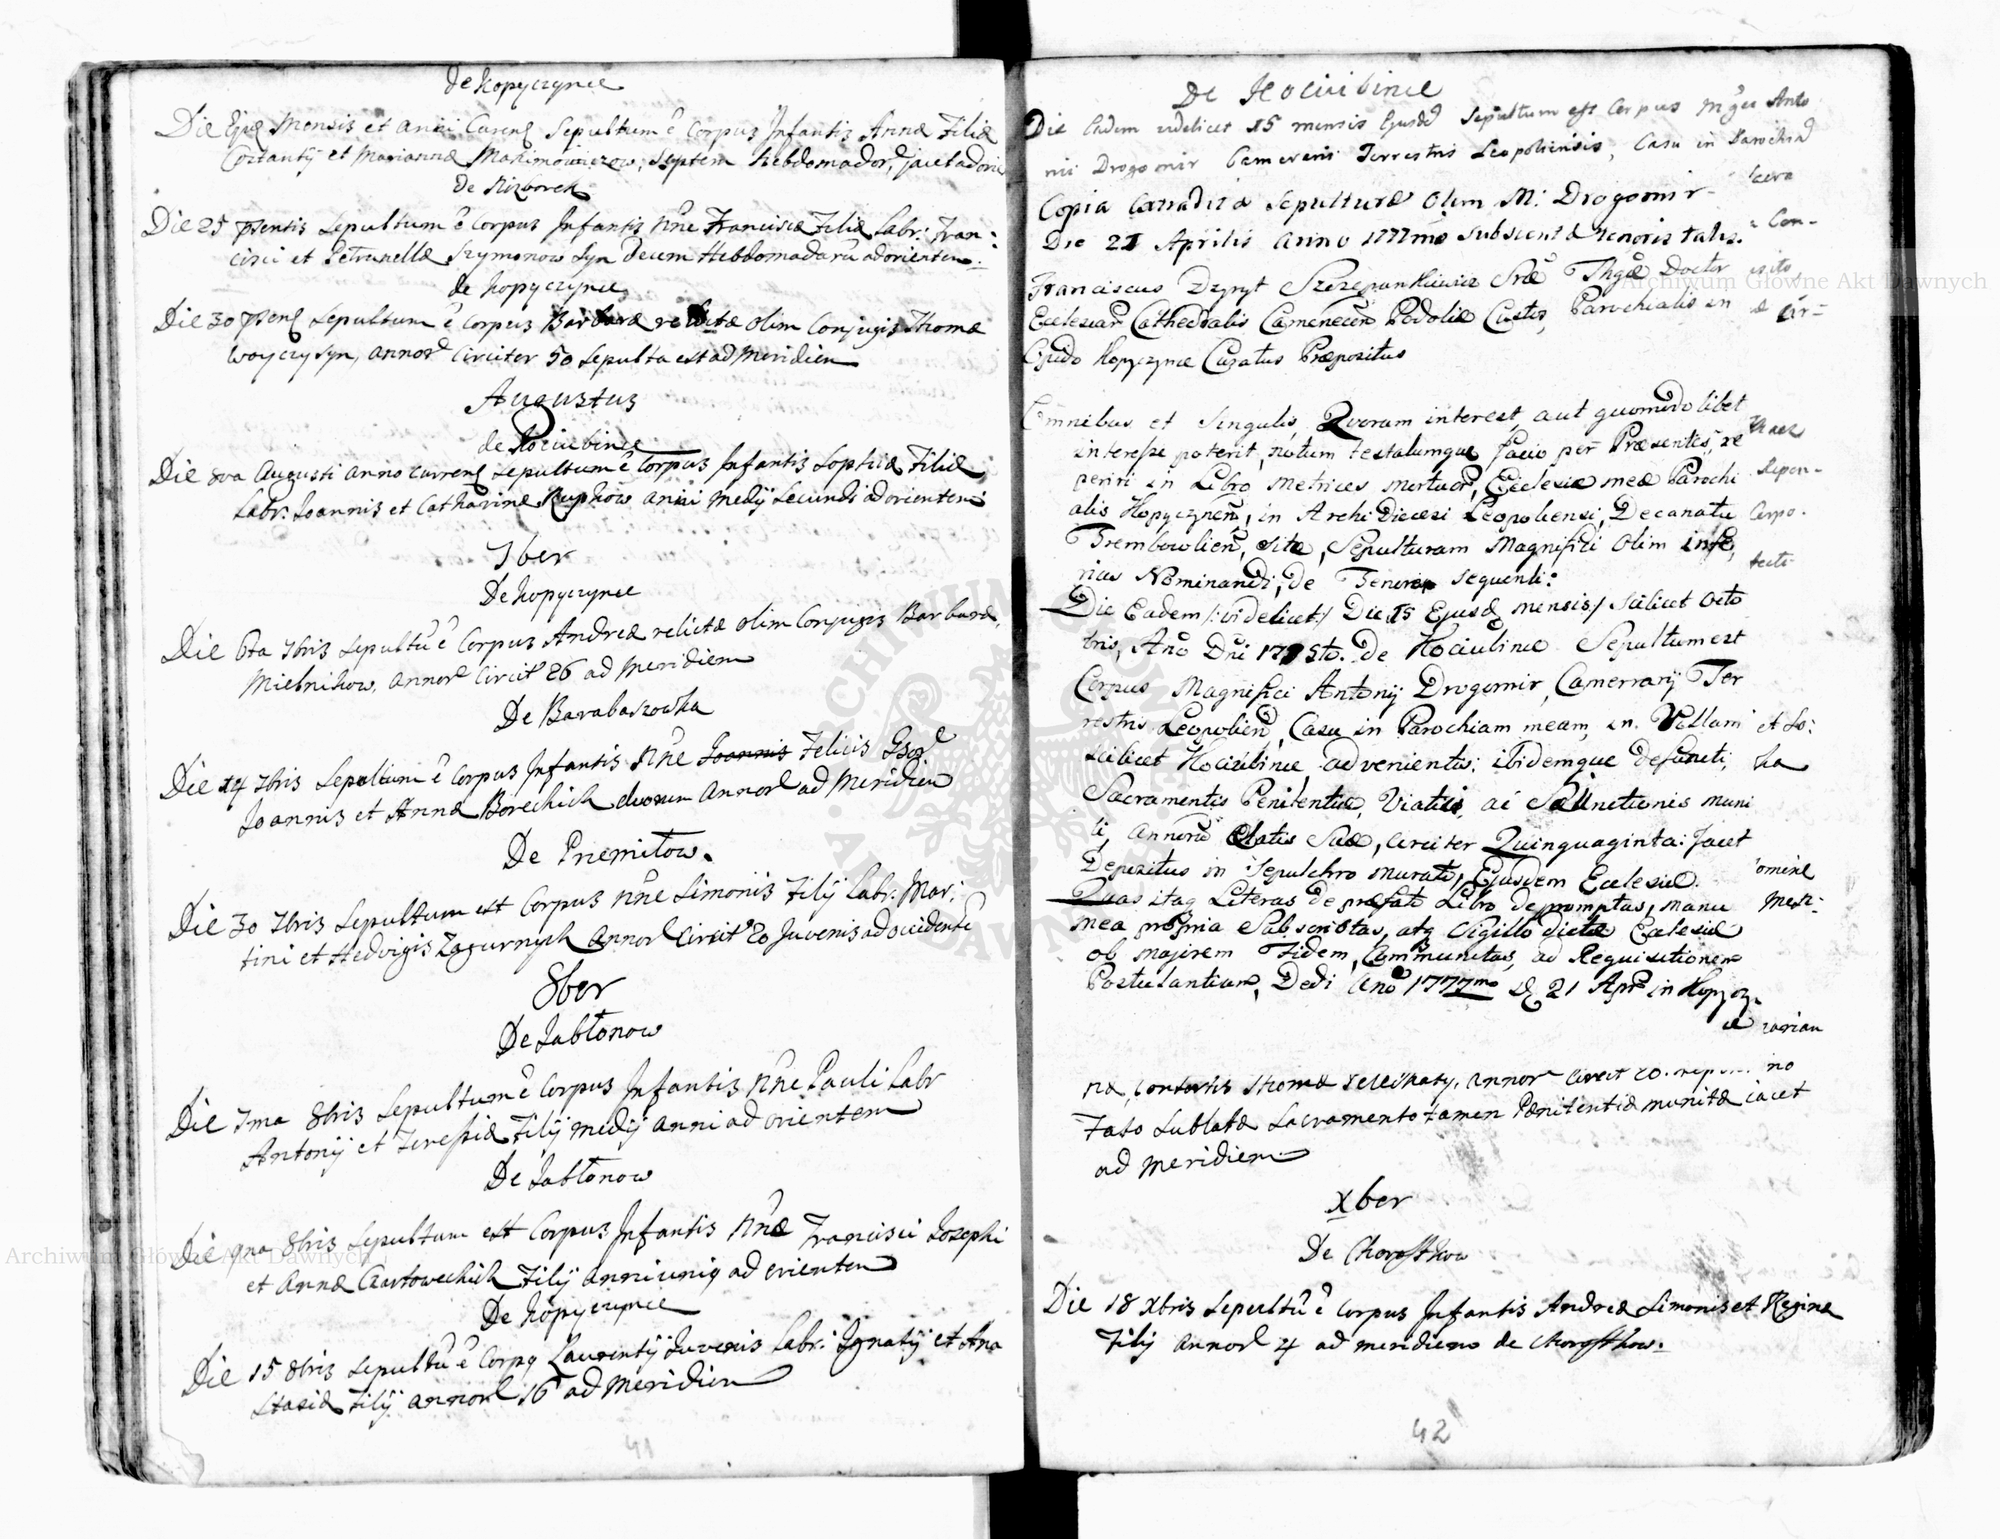 de Kopyczynce
Die Ejusd Mensis et anni Curenq Sepultum ē Corpus Infantis Annæ Filiæ
Costantij et Mariannæ Maximowiczow, septem Hebdomador, jacet ad orien
de Nizborek
Die 25 psentis Sepultum ē Corpus Infantis Nne Franciscæ Filiæ Labr: Fran:
cisci et Petrunellæ Szymonow Syn Decem Hebdomadarū ad orientem.
de Kopyczynce
Die 30 psenq Sepultum ē Corpus Barbaræ relictæ olim Conjugis Thomæ
Woyczysyn, annor circiter 50 Sepulta est ad Meridiem
Augustus
de Kociubince
Die 8va Augusti anno currenq Sepultum ē Corpus Infantis Sophiæ Filiæ
Labr: Joannis et Catharinæ Kuphow anni medij Secundi ad orientem
7ber
De Kopyczynce
Die 6ta 7bris Sepultū ē Corpus Andreæ relictæ olim Conjugis Barbaræ
Mielnikow, annor Circit 26 ad Meridiem
De Barabaszowka
Die 14 7bris Sepultum ē Corpus Infantis Nne Joannis Felicis Gsor
Joannis et Annæ Borechich duorum Annor ad Meridiem
De Przemitow.
Die 30 7bris Sepultum est Corpus Nne Simonis Filij Labr: Mar:
tini et Hedvigis Zagurnych Annor Circit 20 Juvenis ad occidente
8ber
De Jabłonow
Die 7ma 8bris Sepultum ē Corpus Infantis Nne Pauli Labr
Antonij et Teressiæ Filij medij anni ad orientem
De Jabłonow
Die 9na 8bris Sepultum est Corpus Infantis Nnæ Francisci Josephi
et Annæ Czartowechich Filij anni uniq ad orientem
De Kopyczynce
Die 15 8bris Sepultū ē Corpq Laurentij Juvenis Labr: Ignatij et Ana
stasiæ Filij annor 16 ad Meridiem
41
De Kociubince
Die Eadem videlicet 15 mensis Ejusdē Sepultum est Corpus Mgci Anto
nii Drogomir Camerarii Terrestris Leopoliensis, Casu in Parochiā
Copia Extradita Sepulturæ olim M: Drogomir
Die 21 Aprilis Anno 1777mo Subsecutæ tenoris talis.
Franciscus Dzyryt Szczepankiewicz Sræ Thgæ Doctor
Ecclesiar Cathedralis Camenecen Podoliæ Custos, Parochialis in
Opido Kopyczynce Curatus Præpositus
Omnibus et Singulis, Quorum interest, aut quomodolibet
interesse poterit, notum testatumque facio per Præsentes, re
periri in Libro Metrices mortuor, Ecclesiæ meæ Parochi
alis Kopyczynen, in Archi Diœcesi Leopoliensi, Decanatu
Trembowlien, sitæ, Sepulturam Magnifici olim infe
rius Nominandi, de Tenore sequenti:
Die Eadem /:videlicet:/ Die 15 Ejusq mensis / scilicet octo
bris, Año Dni 1775to. De Kociubince Sepultum est
Corpus Magnifici Antonij Drogomir, Camerrarij Ter
restris Leopolien, Casu in Parochiam meam, in Villam
scilicet Kociubince, advenientis: ibidemque defuncti,
Sacramentis Penitentiæ, Viatici, ac S. Unctionis muni
ti, annorū Ætatis Suæ, circiter Quinquaginta: Jacet
Depositus in Sepulchro murato, Ejusdem Ecclesiæ.
Quas itaq Literas de præfato Libro depromptas, manu
mea propria Subscriptas, atq Sigillo dictæ Ecclesiæ
ob majorem Fidem, Communitas, ad Requisitionem
Postulantium, Dedi Ano 1777mo D 21 Apr in Kopyczy
ce
kera
Con-
Repon-
Corpo-
tecti
et So:
ha
nomine
Mar:
rarian
næ, consortis Thomæ Seleskaty, Annor Circit 20. repen no
Fato Sublatæ Sacramento tamen Pænitentiæ munitæ iacet
ad Meridiem
Xber
De Chorostkow
Die 18 Xbris Sepultū ē Corpus Infantis Andreæ Simonis et Reginæ
Filij Annor 4 ad meridiem de Chorostkow.
42
Archiwum Główne Akt Dawnych
Archiwum Główne Akt Dawnych
ARCHIWUM GŁÓWNE AKT DAWNYCH